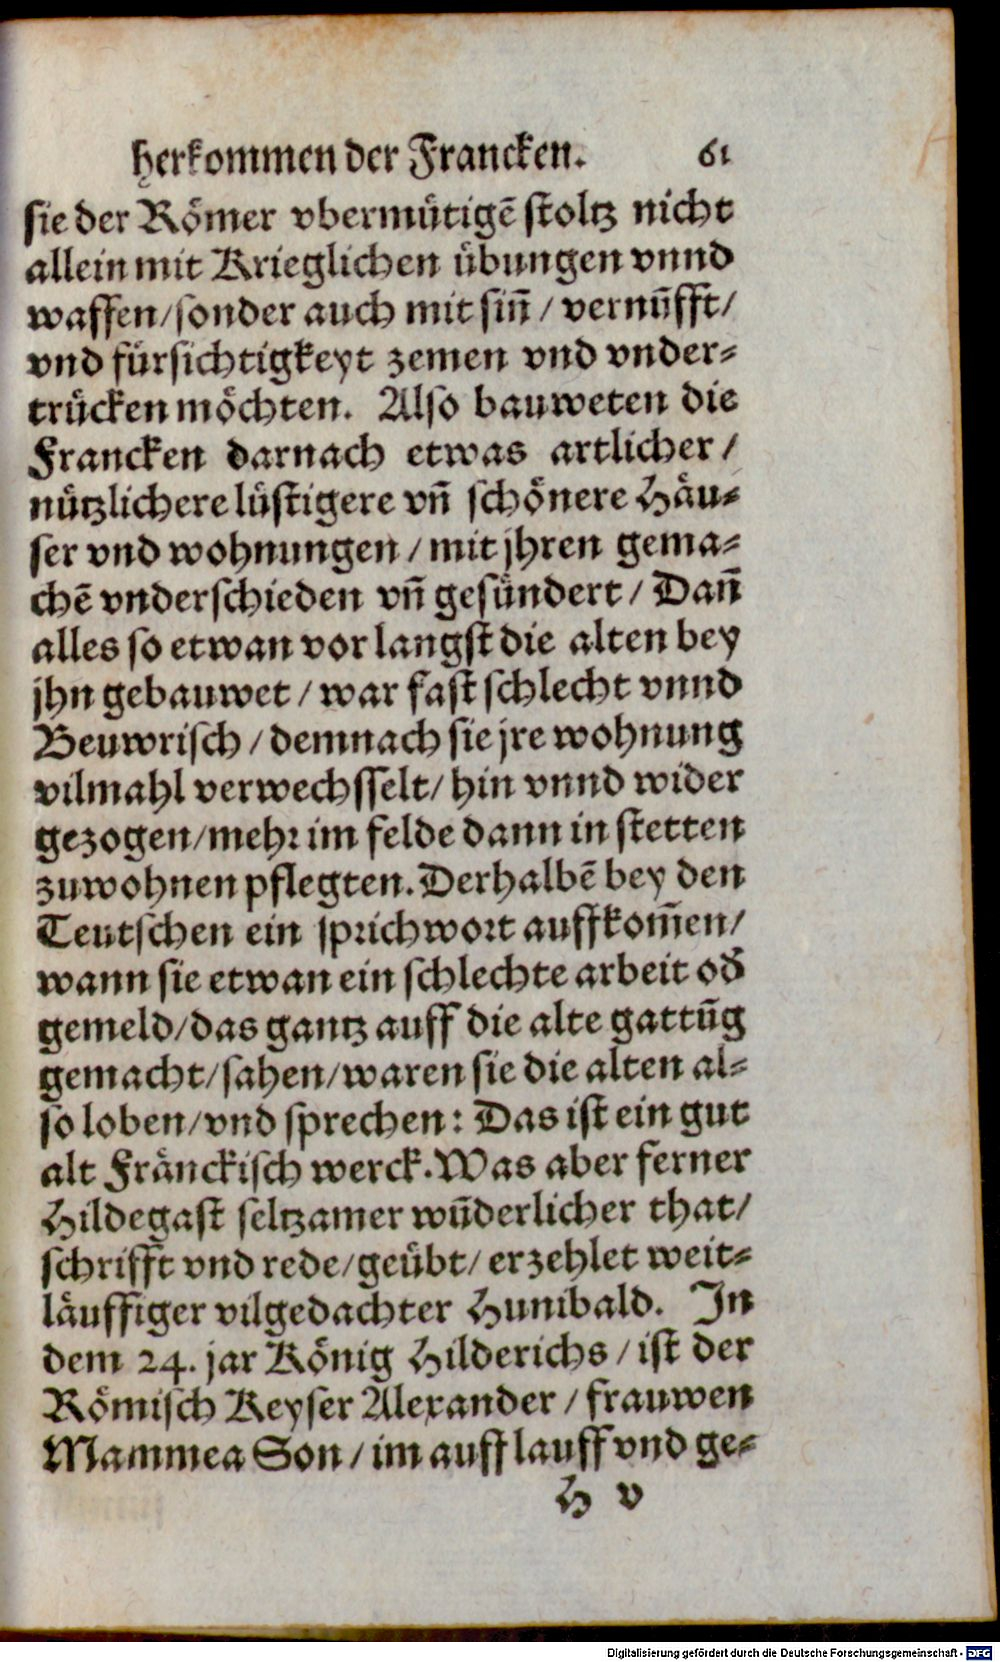 herkommen der Francken. 61
sie der Römer vbermütigẽ stoltz nicht
allein mit Krieglichen übungen vnnd
waffen/sonder auch mit siñ / vernũfft/
vnd fürsichtigkeyt zemen vnd vnder-
trücken möchten. Also bauweten die
Francken darnach etwas artlicher /
nützlichere lüstigere vñ schönere Häu-
ser vnd wohnungen / mit jhren gema-
chẽ vnderschieden vñ gesündert / Dañ
alles so etwan vor langst die alten bey
jhn gebauwet / war fast schlecht vnnd
Beuwrisch / demnach sie jre wohnung
vilmahl verwechsselt/ hin vnnd wider
gezogen/mehr im felde dann in stetten
zuwohnen pflegten. Derhalbẽ bey den
Teutschen ein sprichwort auffkom̃en/
wann sie etwan ein schlechte arbeit od̃
gemeld/das gantz auff die alte gattũg
gemacht/sahen/waren sie die alten al-
so loben/vnd sprechen: Das ist ein gut
alt Fränckisch werck. Was aber ferner
Hildegast seltzamer wũderlicher that/
schrifft vnd rede/geübt/ erzehlet weit-
läuffiger vilgedachter Hunibald. In
dem 24. jar König Hilderichs / ist der
Römisch Keyser Alexander / frauwen
Mammea Son / im aufflauff vnd ge-
H v
Digitalisierung gefördert durch die Deutsche Forschungsgemeinschaft - DFG